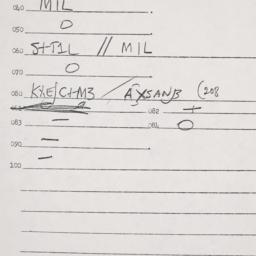 040 MIL
050 O
060 S+T1L // MIL
070 O
080 KXE/C+M3 / AXSANB (208
082 +
083 — 084 O
090 —
—
100